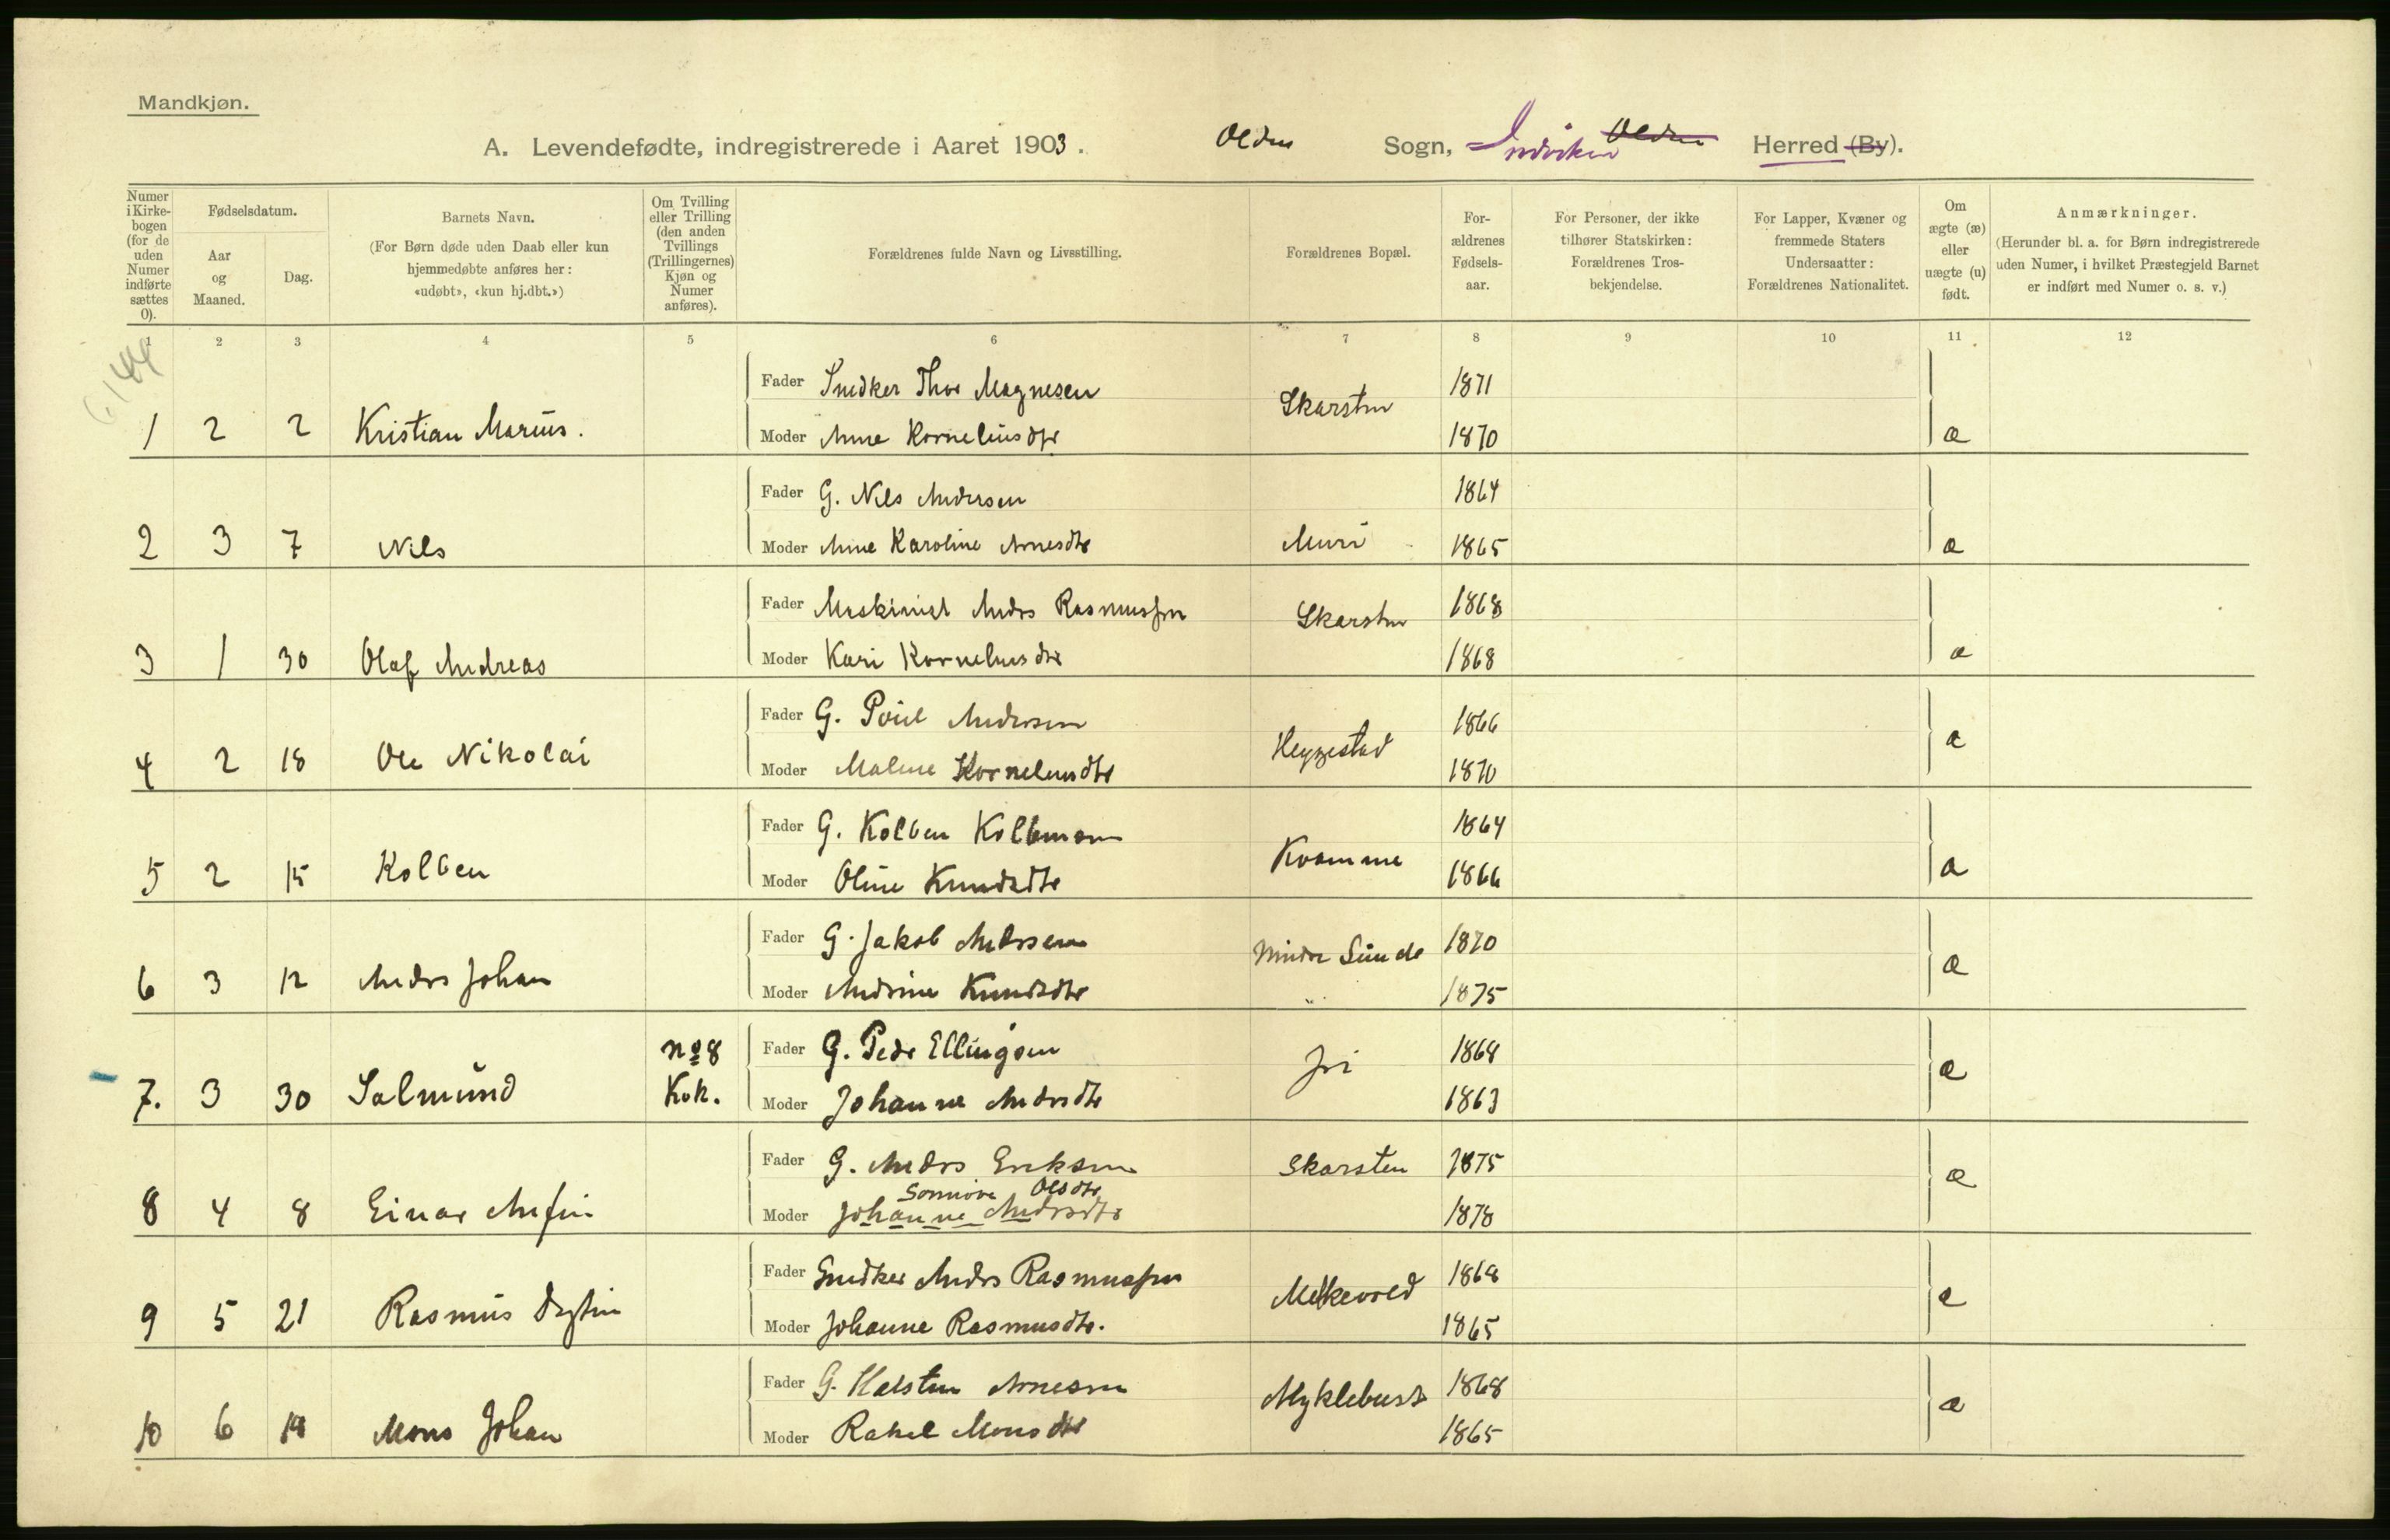 Mandkjøn.
A. Levendefødte, indregistrerede i Aaret 1903. Olden Sogn, Indviken Olden Herred (By).
Numer i Kirkebogen (for de uden Numer indførte sættes 0).
Fødselsdatum.
Aar og Maaned.
Dag.
Barnets Navn.
(For Børn døde uden Daab eller kun hjemmedøbte anføres her: «udøbt», «kun hj.dbt.»)
Om Tvilling eller Trilling (den anden Tvillings (Trillingernes) Kjøn og Numer anføres).
Forældrenes fulde Navn og Livsstilling.
Forældrenes Bopæl.
Forældrenes Fødselsaar.
For Personer, der ikke tilhører Statskirken: Forældrenes Trosbekjendelse.
For Lapper, Kvæner og fremmede Staters Undersaatter: Forældrenes Nationalitet.
Om ægte (æ) eller uægte (u) født.
Anmærkninger.
(Herunder bl. a. for Børn indregistrerede uden Numer, i hvilket Præstegjeld Barnet er indført med Numer o. s. v.)
1 2 3 4 5 6 7 8 9 10 11 12
Fader Snedker Thor Magnesen Skarsten 1871
1 2 2 Kristian Marius. Moder Anne Korneliusdtr 1870 æ
Fader G. Nils Andersen 1864
2 3 7 Nils Moder Anne Karoline Arnesdtr Muri 1865 æ
Fader Maskinist Anders Rasmussen Skarsten 1868
3 1 30 Olaf Andreas Moder Kari Korneliusdtr 1868 æ
Fader G. Poul Andersen 1866
4 2 18 Ole Nikolai Moder Malene Korneliusdtr Heggestad 1870 æ
Fader G. Kolben Kolbensen 1864
5 2 15 Kolben Moder Oline Knudsdtr Kvamme 1866 æ
Fader G. Jakob Anderssen Mindre Sunde 1870
6 3 12 Anders Johan Moder Andrine Knudsdtr " 1875 æ
No 8 Fader G. Peder Ellingsen Jri 1868
7. 3 30 Salmund Kvk. Moder Johanne Andersdtr 1863 æ
Fader G. Anders Eriksen Skarsten 1875
Sønnøve Olsdtr
8 4 8 Einar Anfin Moder Johanne Andersdtr 1878 æ
Fader Snedker Anders Rasmussen Melkevold 1868
9 5 21 Rasmus Moder Johanne Rasmusdtr. 1865 æ
Fader G. Halsten Arnesen Myklebust 1868
10 6 19 Mons Johan Moder Rakel Monsdtr 1865 æ